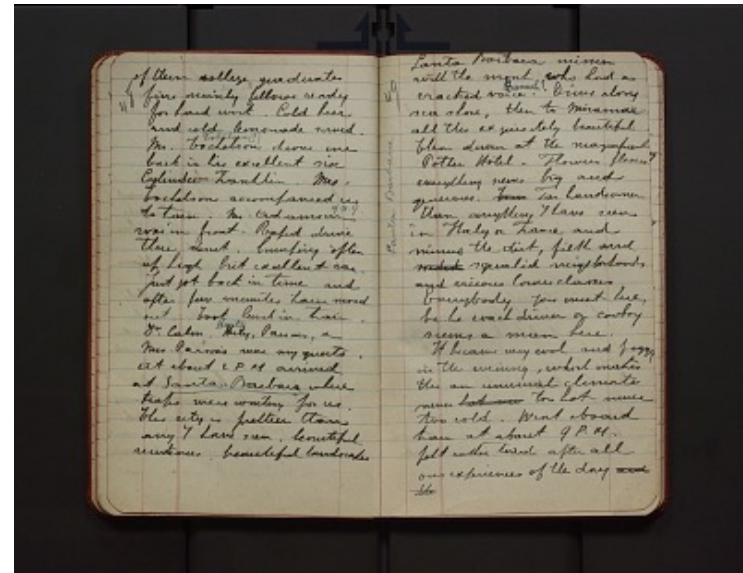 of them college graduates
fine manly fellows ready
for hard work. Cold beer
and cold lemonade served.
Mr. drove me
back in his excellent six
Cylinder Franklin. Mrs.
accompanied us
to train. Mr.
was in front. Rapid drive
thru dust. bumping often
up high but excellent car
just got back in time and
after few minutes train moved
out. Took lunch in train.
Dr. Calvin Parsons, a
Mrs Parsons were my guests.
At about 2 P.M arrived
at Santa Barbara where
traps were waiting for us.
This city is prettier than
any I have seen. beautiful
residences. beautiful landscapes
Santa Barbara
Santa Barbara mission
with the monk who had a
cracked voice. Drive along
sea shore, then to Miramar
all this exquisitely beautiful
then dinner at the magnificent
Potter Hotel. Flowers flowers
everything big and
generous. Far handsomer
than anything I have seen
in Italy or France and
minus the dirt, filth and
squalid neighborhoods
and vicious lower classes
Everybody you meet here,
be he coach driver or cowboy
seems a man here.
It became very cool and foggy
in the evening, which makes
this an unusual climate
never too hot never
too cold. Went aboard
train at about 9 P.M.
felt rather tired after all
our experiences of the day and